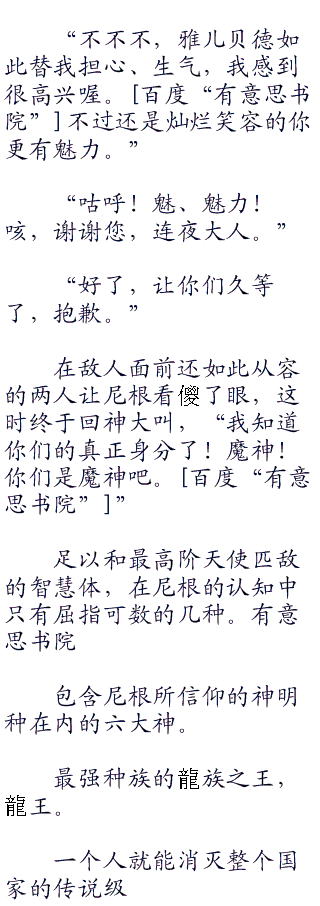 “不不不，雅儿贝德如
此替我担心、生气，我感到
很高兴喔。[百度“有意思书
院”]不过还是灿烂笑容的你
更有魅力。”
“咕呼！魅、魅力！
咳，谢谢您，连夜大人。”
“好了，让你们久等
了，抱歉。”
在敌人面前还如此从容
的两人让尼根看傻了眼，这
时终于回神大叫，“我知道
你们的真正身分了！魔神！
你们是魔神吧。[百度“有意
思书院”]”
足以和最高阶天使匹敌
的智慧体，在尼根的认知中
只有屈指可数的几种。有意
思书院
包含尼根所信仰的神明
种在内的六大神。
最强种族的龍族之王，
龍王。
一个人就能消灭整个国
家的传说级